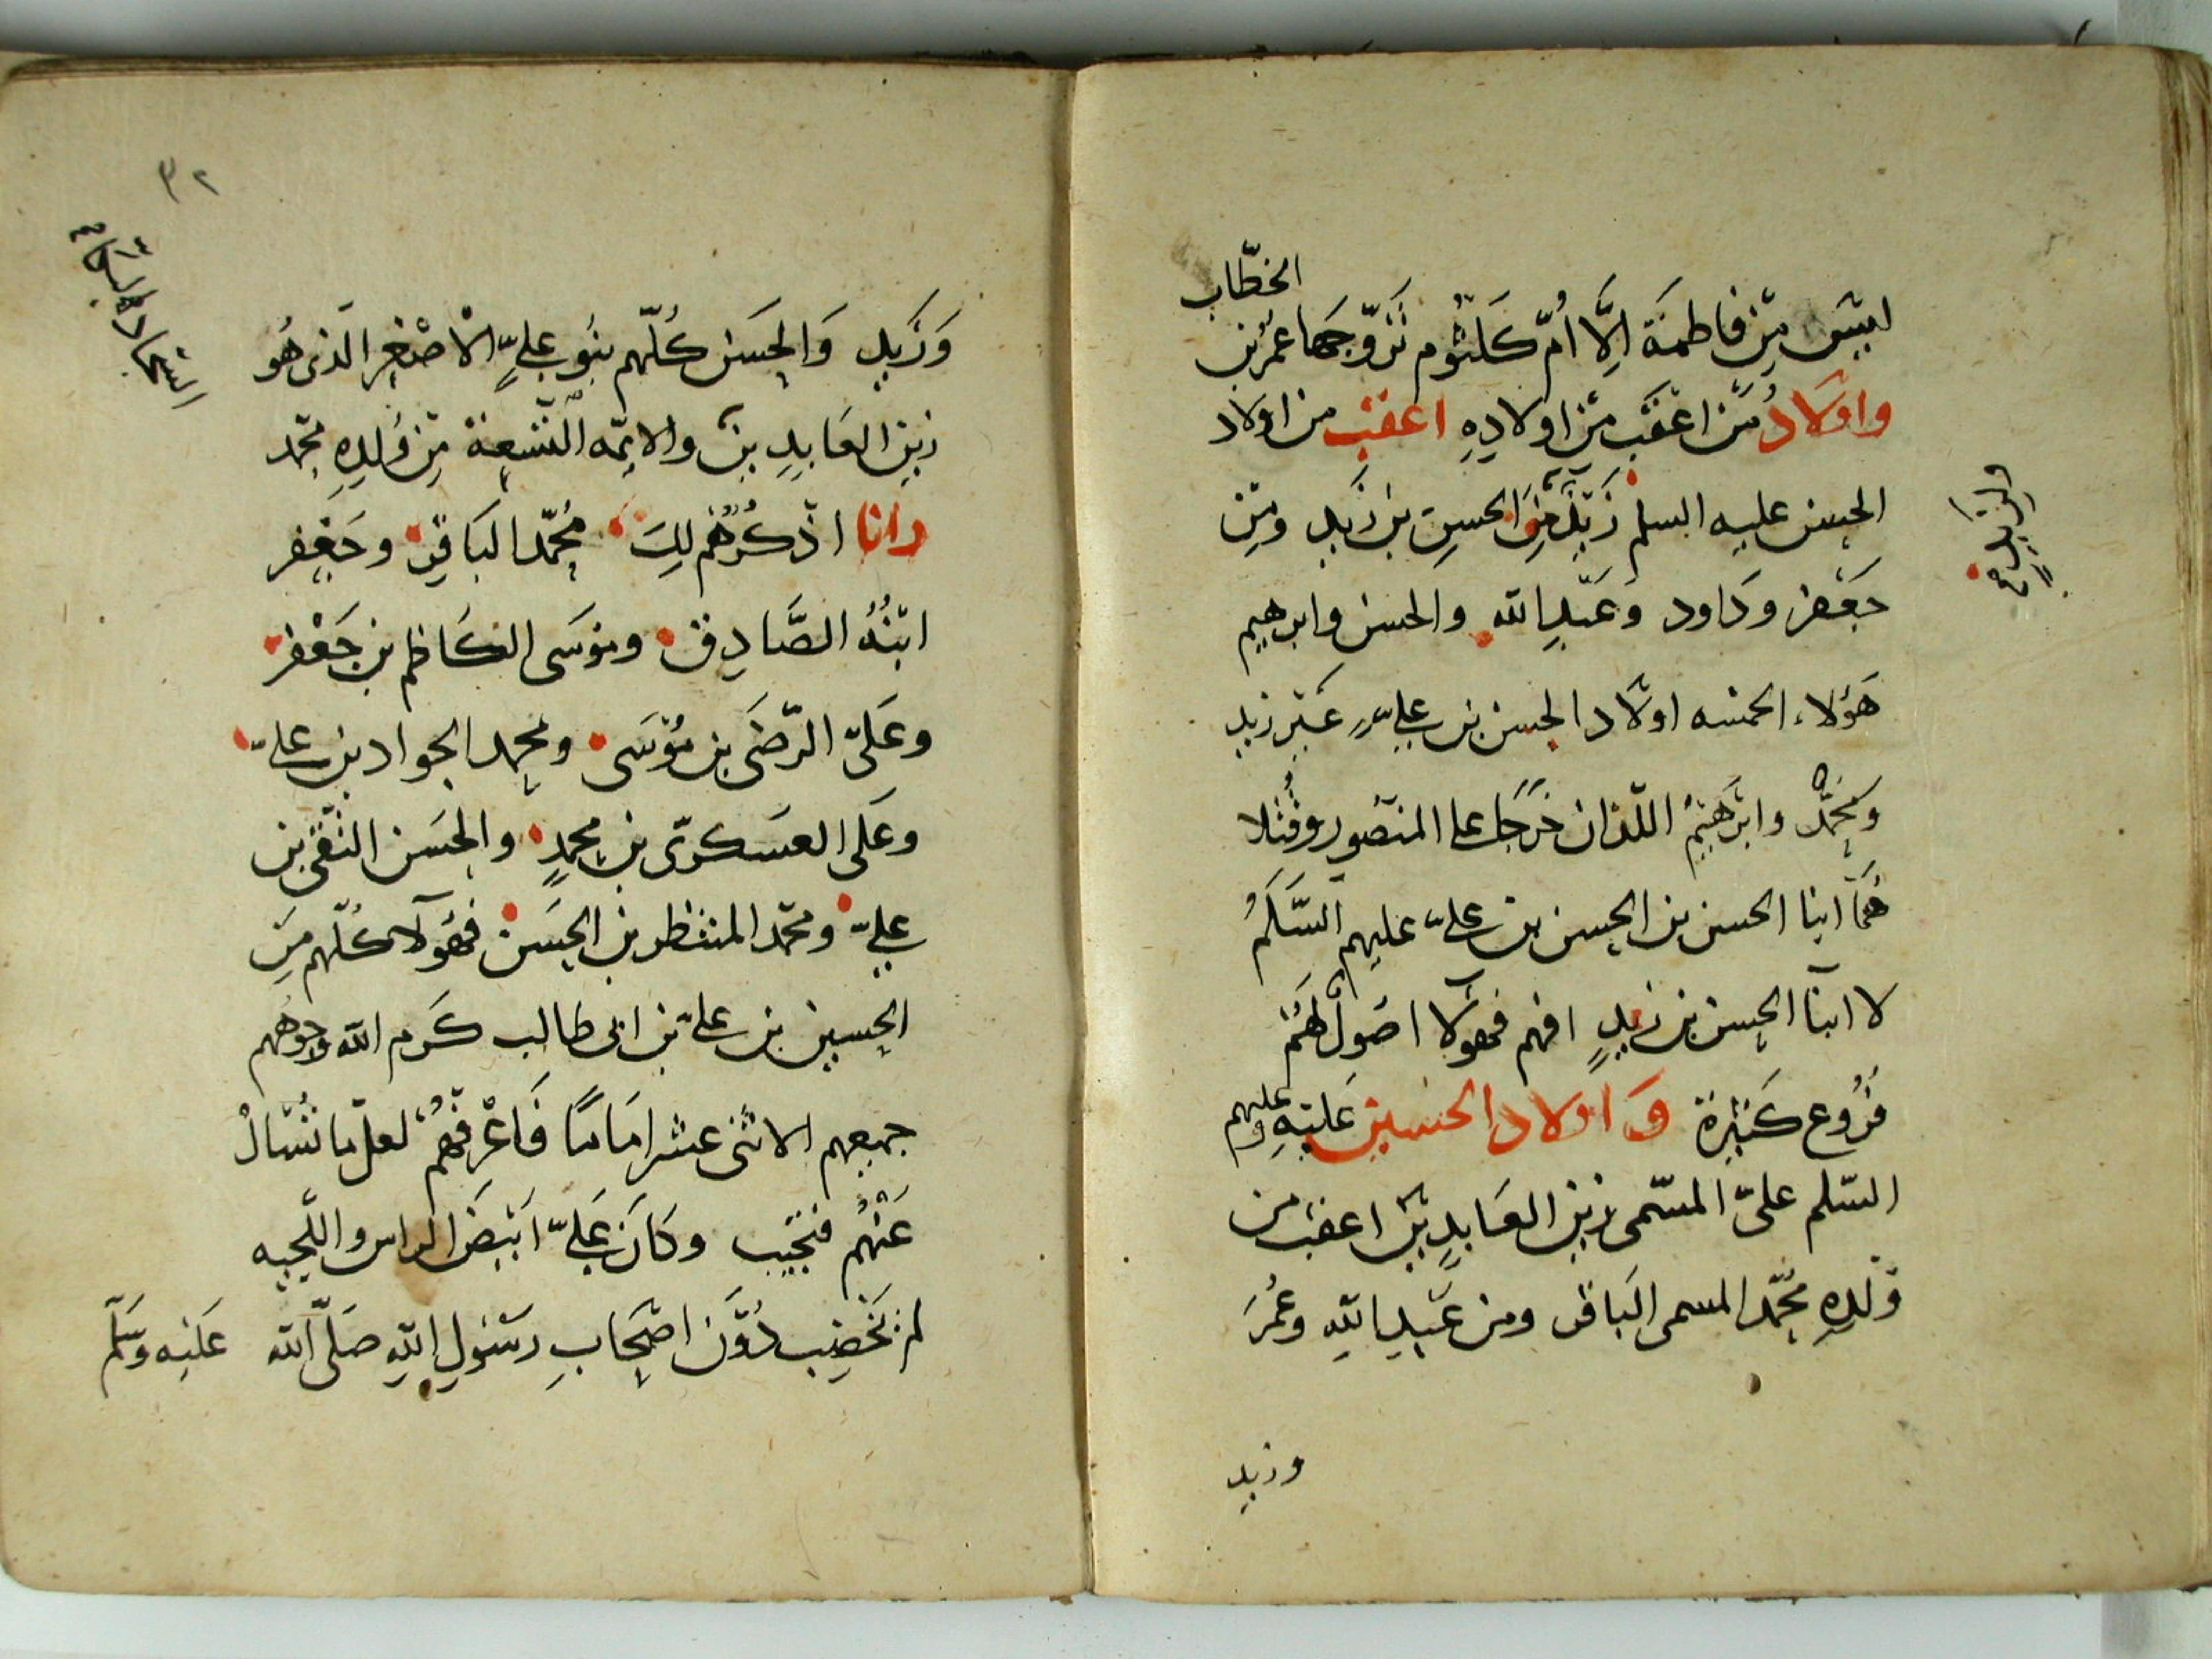 الخطّاب
ليسَ مِن فاطمَة اِلَّا اُمّ كَلثُوم تَزوّجَها عمُر بن
واولادُ مَن اعقَب مِن اولادِهِ اعقب من اولاد
الحسن عليه السلم زَيْدٌ مِنَ الحسن بن زَيد ومِن
جَعفر وَداود وَعَبدِ الله والحسن وابرهيم
هَؤلاء الخمسه اولاد الحسن بن عليٍّ غَير زيد
ومحمّدٌ وابرَهيمُ اللّذان خَرَجَا على المنصُور وقُتلا
هُمَا ابنا الحسن بن الحسن بن عليّ عليهم السَّلَمُ
لا ابنا الحسن بن زيدٍ افهم فهولَا اصُولٌ لهَمُ
فرُوع كَثيرة وَ اولاد الحسين عَليهِ وعليهم
السّلم علىّ المسّمى زين العَابدِين اعقب من
وَلدِهِ محُمّد المسمى البَاقر ومن عَبدِ اللهِ وعُمَرَ
وزيد
٣٢
وَزَيدٍ وَالحسَن كُلّهم بنُو عليٍّ الاصْغر الّذى هُو
زين العَابدِين والايمّه التّسعة مِن وُلدِهِ محمّد
وانا اذكُرُهُم لكَ محُمّد البَاقر وجَعْفر
ابنُهُ الصَّادِق ومُوسَى الكَاظم بن جَعْفر
وعَلىّ الرّضَى بن مُوسَى ومحمد الجواد بن علىّ
وعَلى العسَكرىّ بن محمدٍ والحسَن التّقى بن
عليّ ومحمّد المنتظر بن الحسَن فهَؤلآ كُلّهم مِن
الحسين بن علىّ بن ابى طالب كَرم الله وجوههم
جميعهم الاثنى عشر اِمَامًا فَاعْرفهُمْ لعلّ ما تُسْالْ
عَنْهُم فتجُيب وكَانَ عَليّ ابَيضَ الراس واللّحيه
لم يَخضِب دُوَن اصْحَابِ رسَولِ اللهِ صَلّى الله عَليه وسَلّم